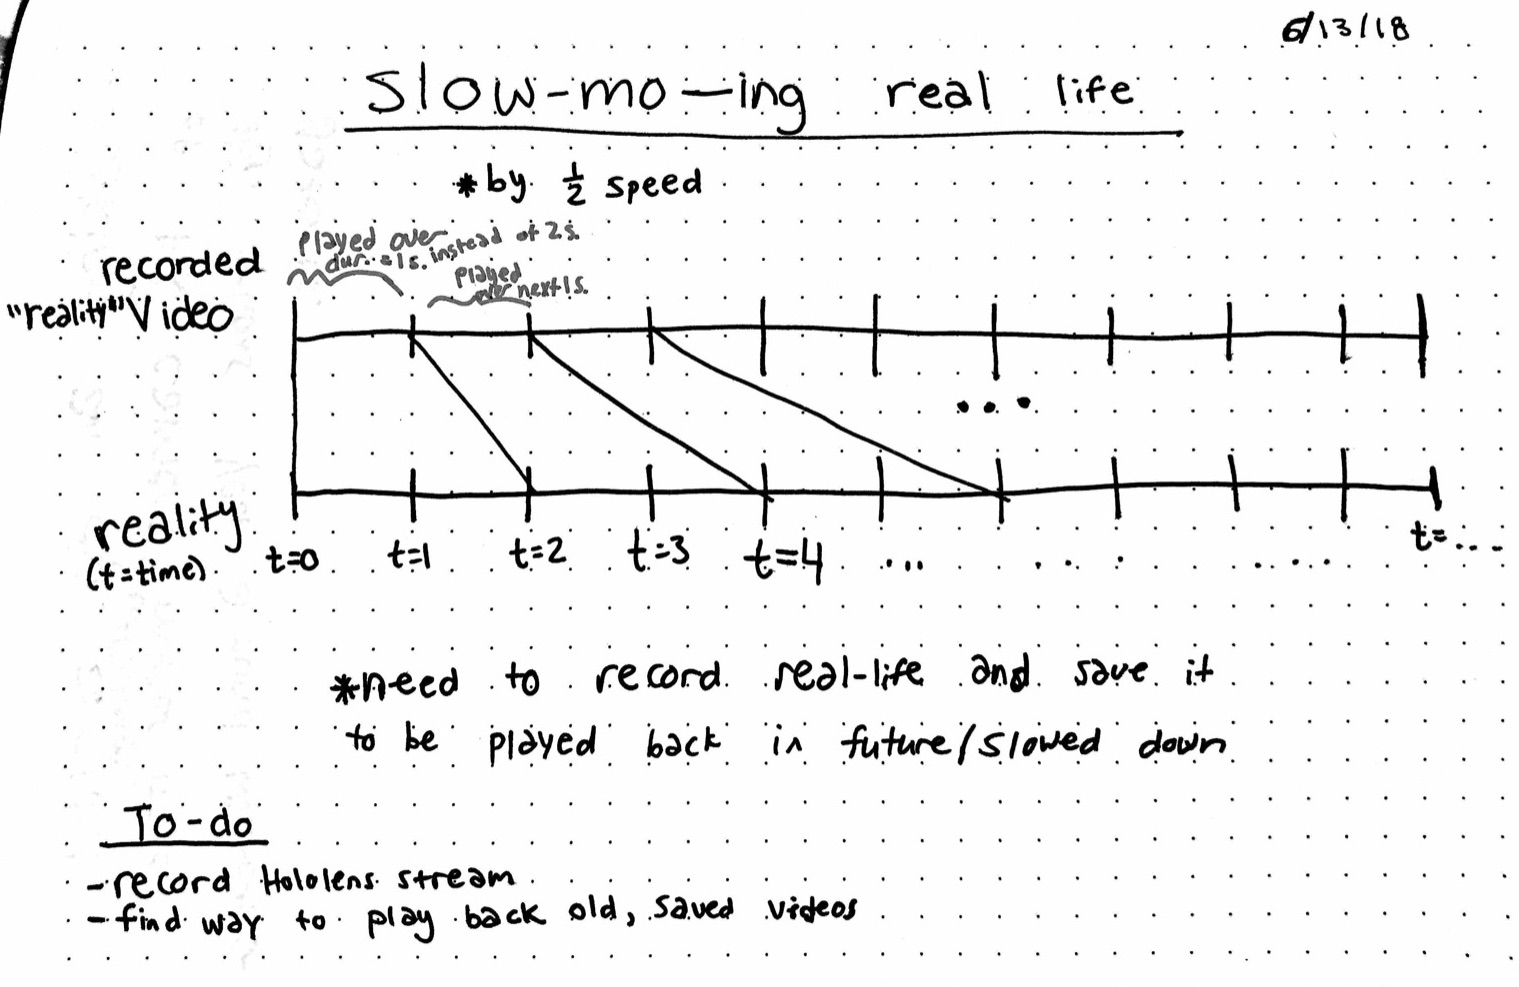 6/13/18
Slow-mo-ing real life
*by ½ speed
Played over
dur. = 1s. instead of 2s.
Played
over next 1s.
recorded
"reality" Video
reality
(t=time)
t=0 t=1 t=2 t=3 t=4 ... ... ..... t=....
...
*need to record real-life and save it
to be played back in future/slowed down
To-do
-record Hololens stream
-find way to play back old, saved videos